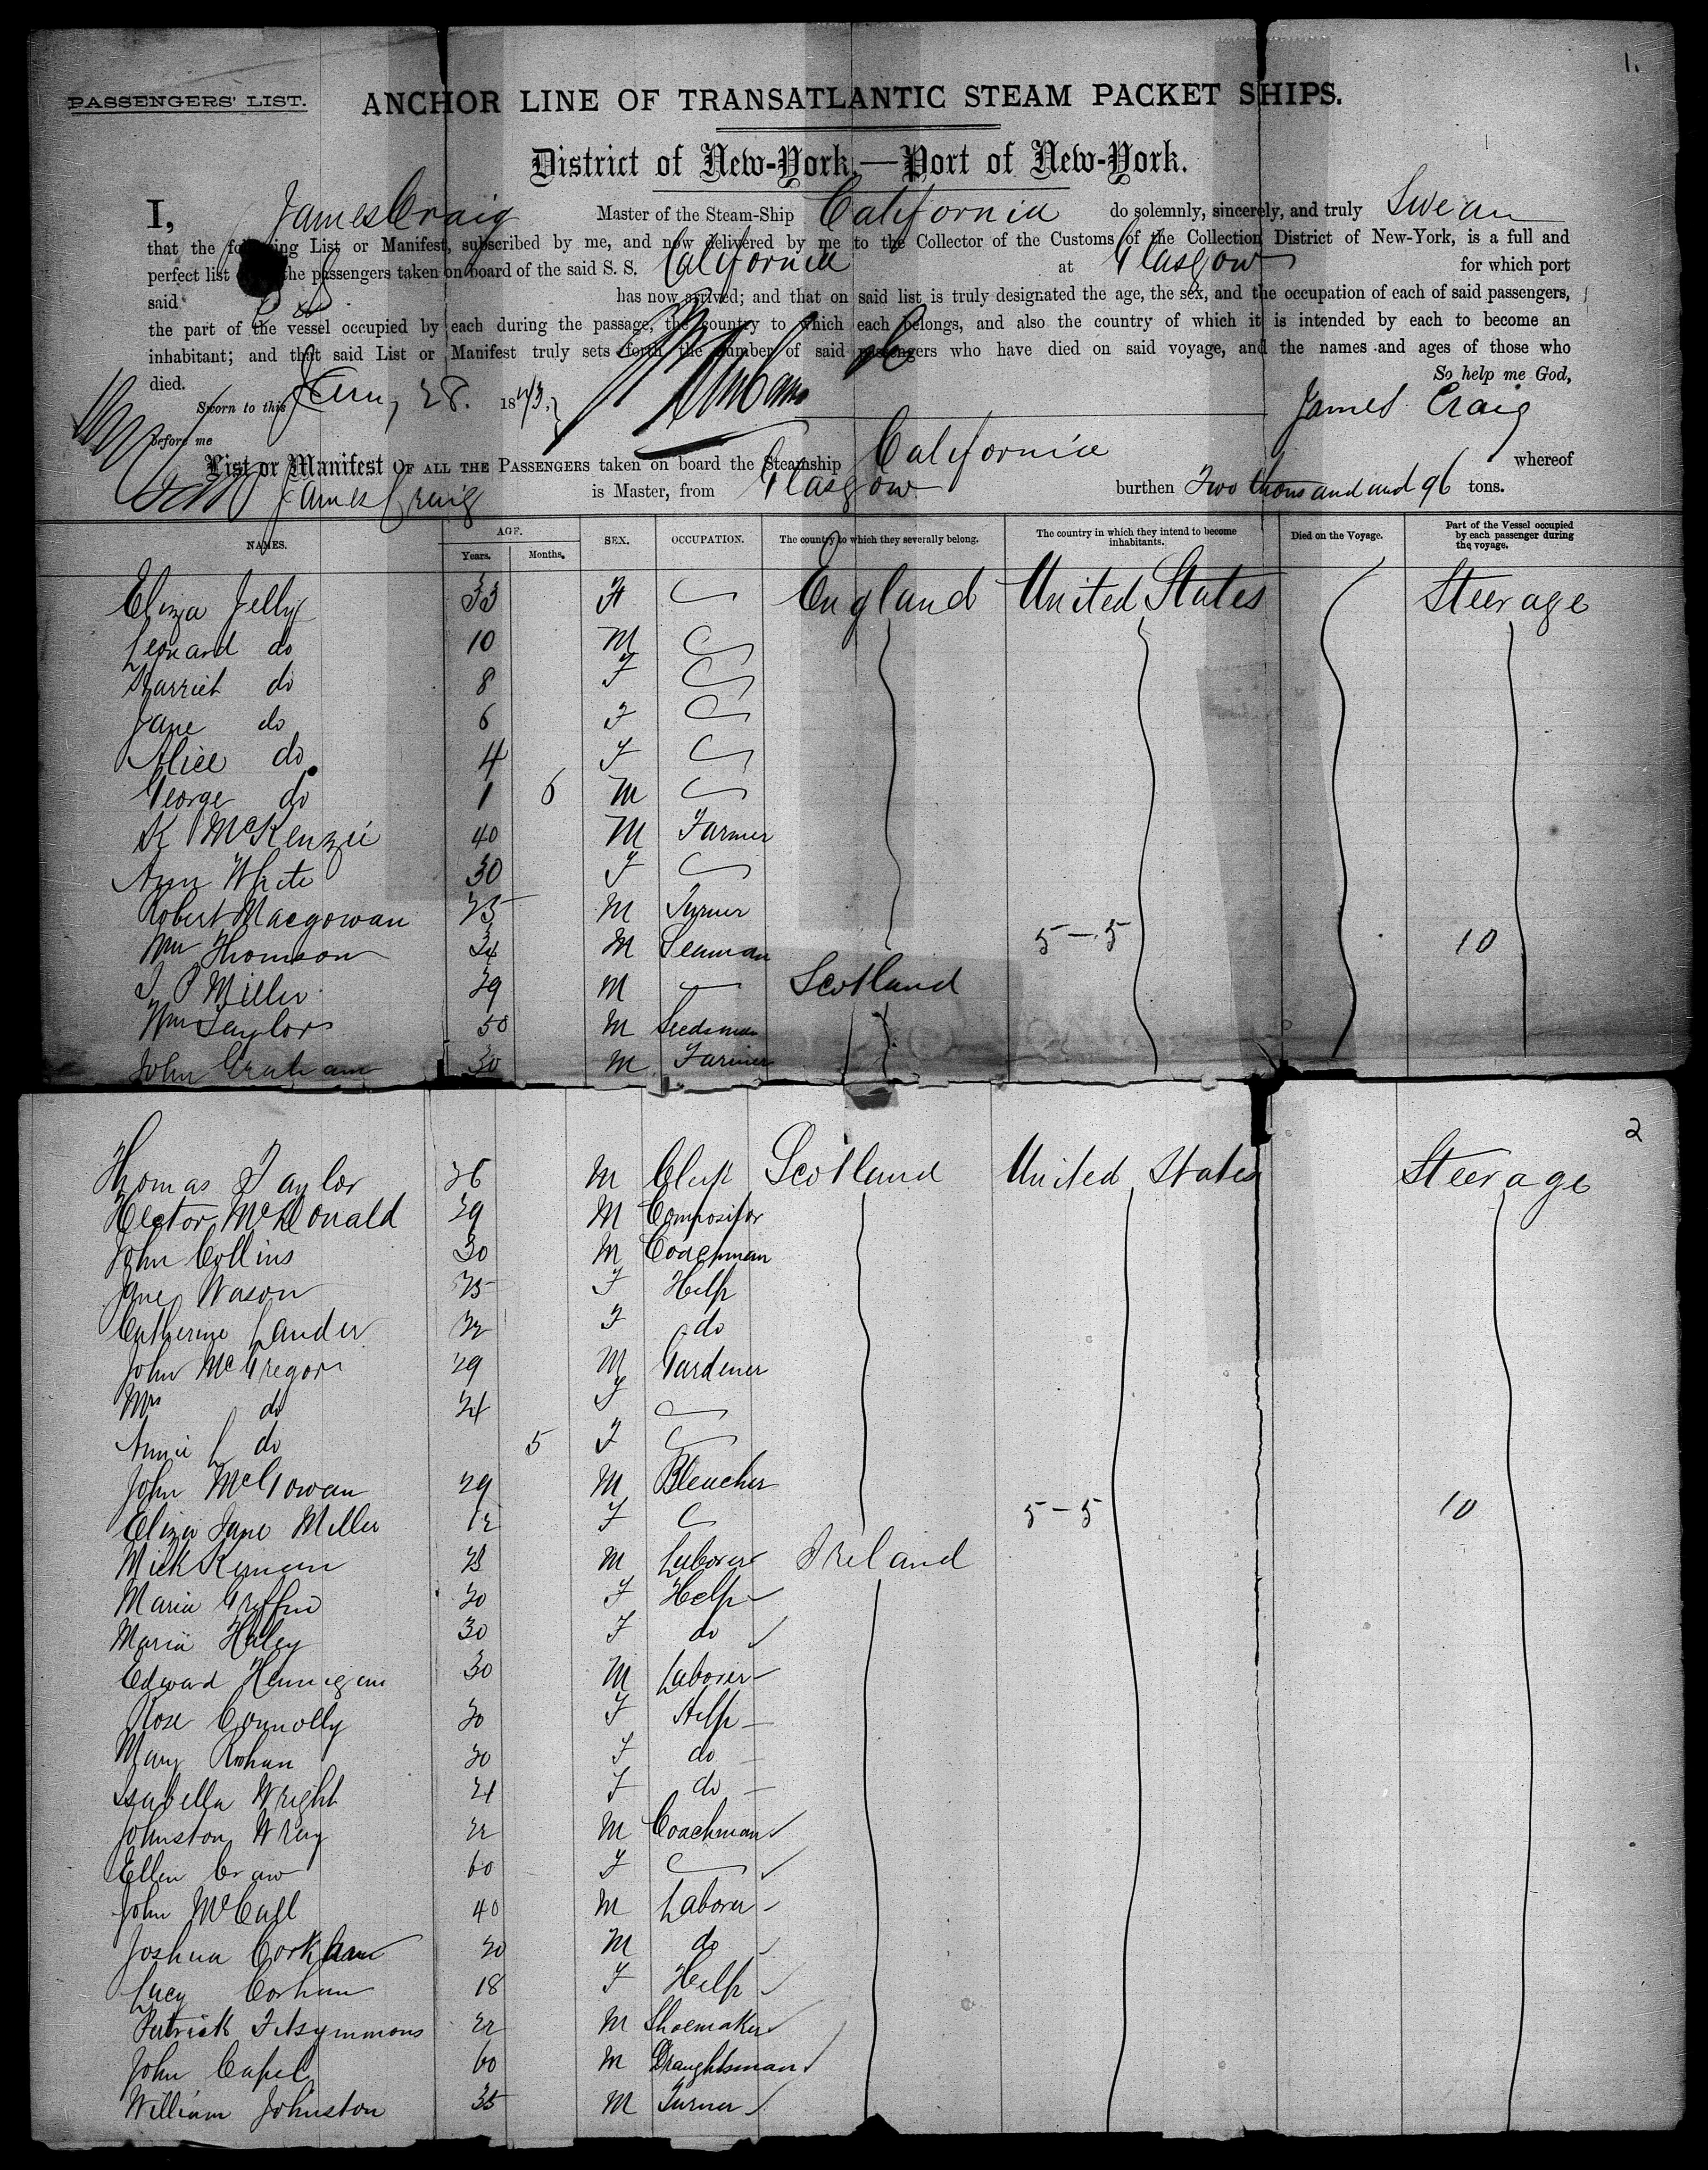 1.
PASSENGERS' LIST. ANCHOR LINE OF TRANSATLANTIC STEAM PACKET SHIPS.
District of New-York,—Port of New-York.
I, James Craig Master of the Steam-Ship California do solemnly, sincerely, and truly Swear
that the following List or Manifest, subscribed by me, and now delivered by me to the Collector of the Customs of the Collection District of New-York, is a full and
perfect list the passengers taken on board of the said S. S. California at Glasgow for which port
said has now arrived; and that on said list is truly designated the age, the sex, and the occupation of each of said passengers,
the part of the vessel occupied by each during the passage, the country to which each belongs, and also the country of which it is intended by each to become an
inhabitant; and that said List or Manifest truly sets forth the number of said passengers who have died on said voyage, and the names and ages of those who
died. So help me God,
Sworn to this Jany 28. 1873. James Craig
before me
List or Manifest OF ALL THE PASSENGERS taken on board the Steamship California whereof
James Craig is Master, from Glasgow burthen Two thousand and 96 tons.
NAMES. AGE. Years. Months. SEX. OCCUPATION. The country to which they severally belong. The country in which they intend to become inhabitants. Died on the Voyage. Part of the Vessel occupied by each passenger during the voyage.
Eliza Jelly 33 F England United States Steerage
Leonard do 10 M
Harriet do 8 F
Jane do 6 F
Alice do 4 F
George do 1 6 M
K McKenzie 40 M Farmer
Ann White 30 F
Robert Macgowan 25 M Turner
Wm Thomson 24 M Seaman 5-5 10
J P Miller 29 M Scotland
Wm Taylor 50 M Seedsman
John Graham 30 M Farmer
2
Thomas Taylor 26 M Clerk Scotland United States Steerage
Hector McDonald 29 M Compositor
John Collins 30 M Coachman
Jane Wason 25 F Help
Catherine Lander 22 F do
John McGregor 29 M Gardener
Mrs do 24 F
Annie L do 5 F
John McGowan 29 M Bleacher
Eliza Jane Miller 12 F 5-5 10
Mick M Laborer Ireland
Maria Griffin 20 F Help
Maria Haley 30 F do
Edward Hannigan 30 M Laborer
Rose Connolly 20 F Help
Mary Rohan 20 F do
Isabella Wright 21 F do
Johnston Wray 22 M Coachman
Ellen Craw 60 F
John McCall 40 M Laborer
Joshua Corkhan 20 M do
Lucy Corhan 18 F Help
Patrick Fitsymmons 22 M Shoemaker
John Capel 60 M Draughtsman
William Johnston 35 M Turner